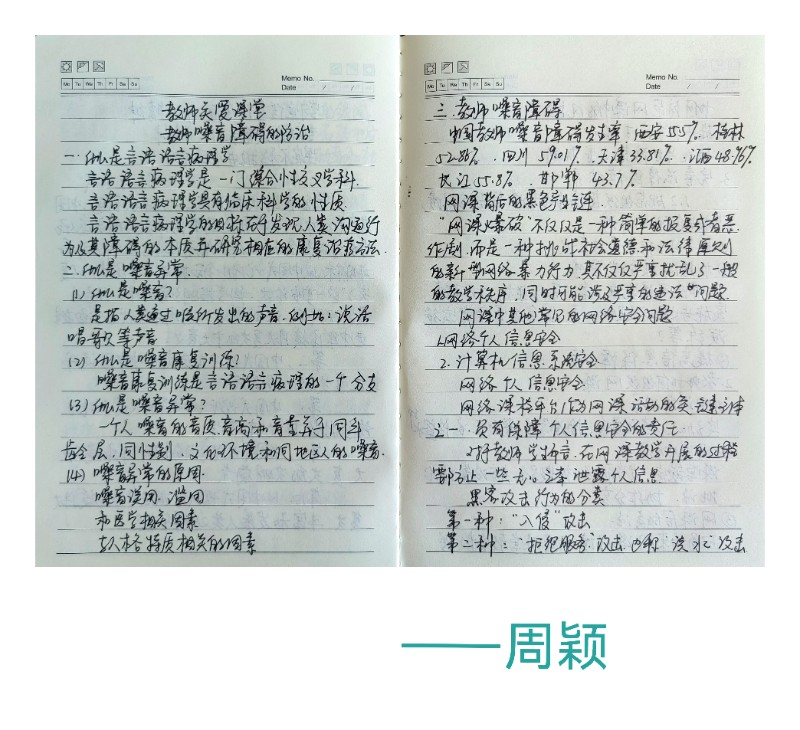 Memo No.
Mo Tu We Th Fr Sa Su
Date / /
教师关爱课堂
教师嗓音障碍的防治
一.什么是言语语言病理学
言语语言病理学是一门综合性交叉学科.
言语语言病理学具有临床科学的性质
言语语言病理学的目标在于发现人类沟通行
为及其障碍的本质并研究相应的康复治疗方法.
二.什么是嗓音异常.
(1)什么是嗓音?
是指人类通过喉所发出的声音.例如:说话
唱歌等声音
(2)什么是嗓音康复训练?
嗓音康复训练是言语语言病理的一个分支
(3)什么是嗓音异常?
一个人嗓音的音质音高和音量异于同年
龄层,同性别,文化环境和同地区人的嗓音.
(4)嗓音异常的原因.
嗓音误用、滥用
和医学相关因素
与人格特质相关的因素
Memo No.
Mo Tu We Th Fr Sa Su
Date / /
三.教师嗓音障碍
中国教师嗓音障碍发生率 西安55%.榆林
52.86%.四川59.01%.天津33.81%.江西48.96%
长江55.8%.邯郸43.7%
网课背后的黑色产业链
"网课爆破"不仅仅是一种简单的报复或者恶
作剧.而是一种挑战社会道德和法律原则
的新型网络暴力行为.其不仅仅严重扰乱了一般
的教学秩序,同时可能涉及严重的违法"问题.
网课中其他常见的网络安全问题
1.网络个人信息安全
2.计算机信息系统安全
网络个人信息安全
网络课程平台作为网课活动的关键主体
之一.负有保障个人信息安全的责任
对教师学生而言.在网课教学开展的过程
要防止一些无意泄露个人信息
黑客攻击行为的分类
第一种:"入侵"攻击
第二种:"拒绝服务"攻击,也称"洪水"攻击
——周颖